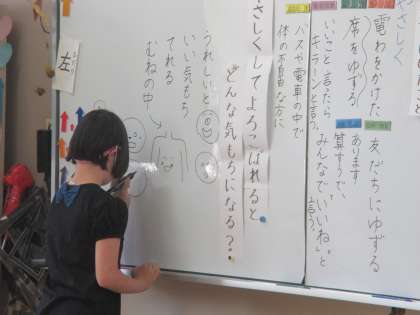 電わをかけた
席をゆずる
いいこと言ったら
キラーンと言う。
バスや電車の中で
体の不自由な方に
友だちにゆずる
あります
算すうで、
みんなで「いいね。」と
言う。
やさしくしてよろこばれると
どんな気もちになる?
うれしいと
いい気もち
てれる
むねの中
左